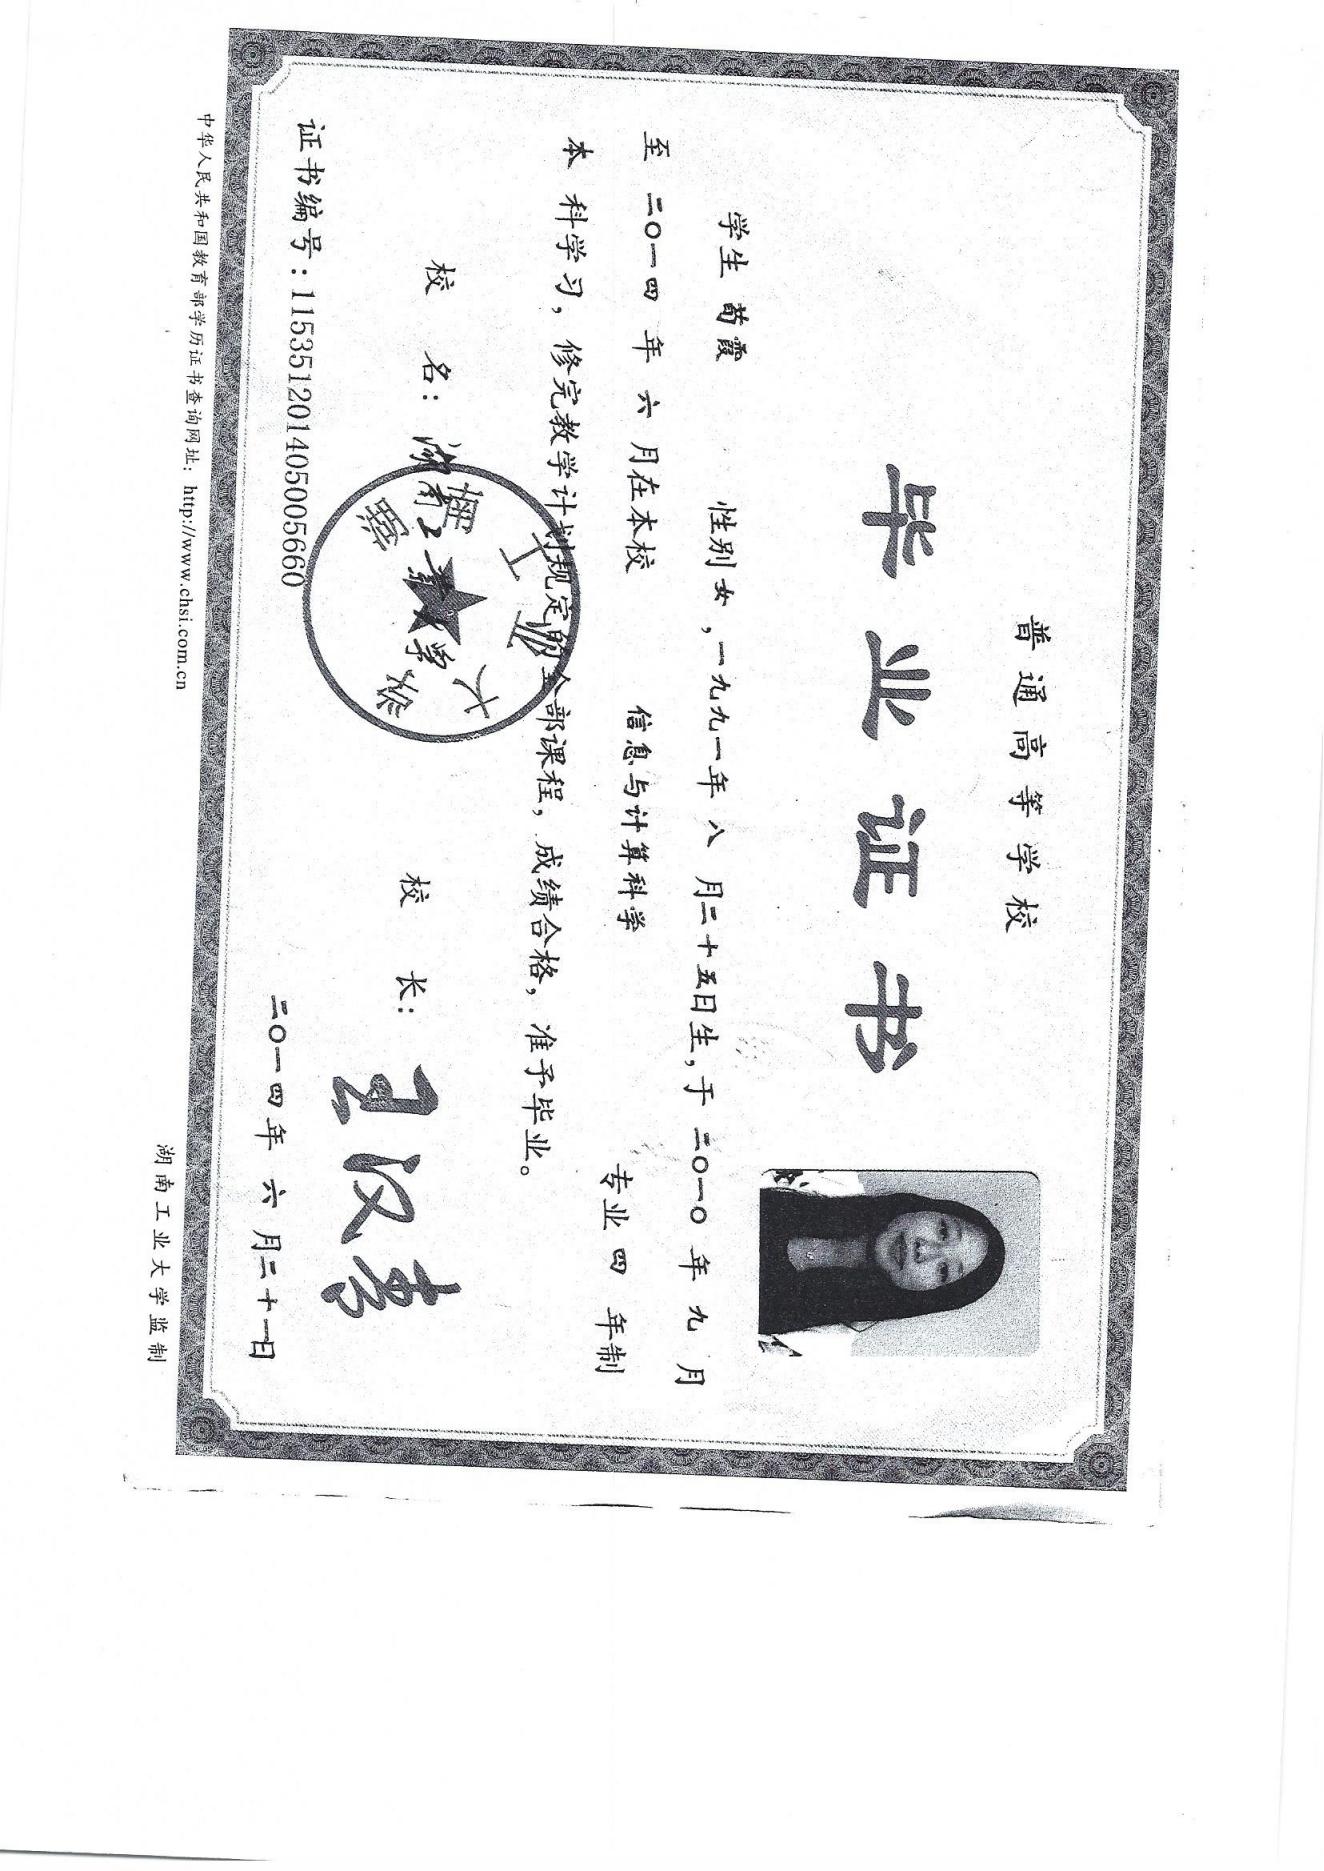 普通高等学校
毕业证书
学生 苟霞 性别女，一九九一年 八 月二十五日生，于 二〇一〇 年 九 月
至 二〇一四 年 六 月在本校 信息与计算科学 专业 四 年制
本 科学习，修完教学计划规定的全部课程，成绩合格，准予毕业。
校 名： 湖南工业大学 校 长：
湖南工业大学
证书编号：115351201405005660 二〇一四年 六 月二十一日
中华人民共和国教育部学历证书查询网址：http://www.chsi.com.cn 湖南工业大学监制